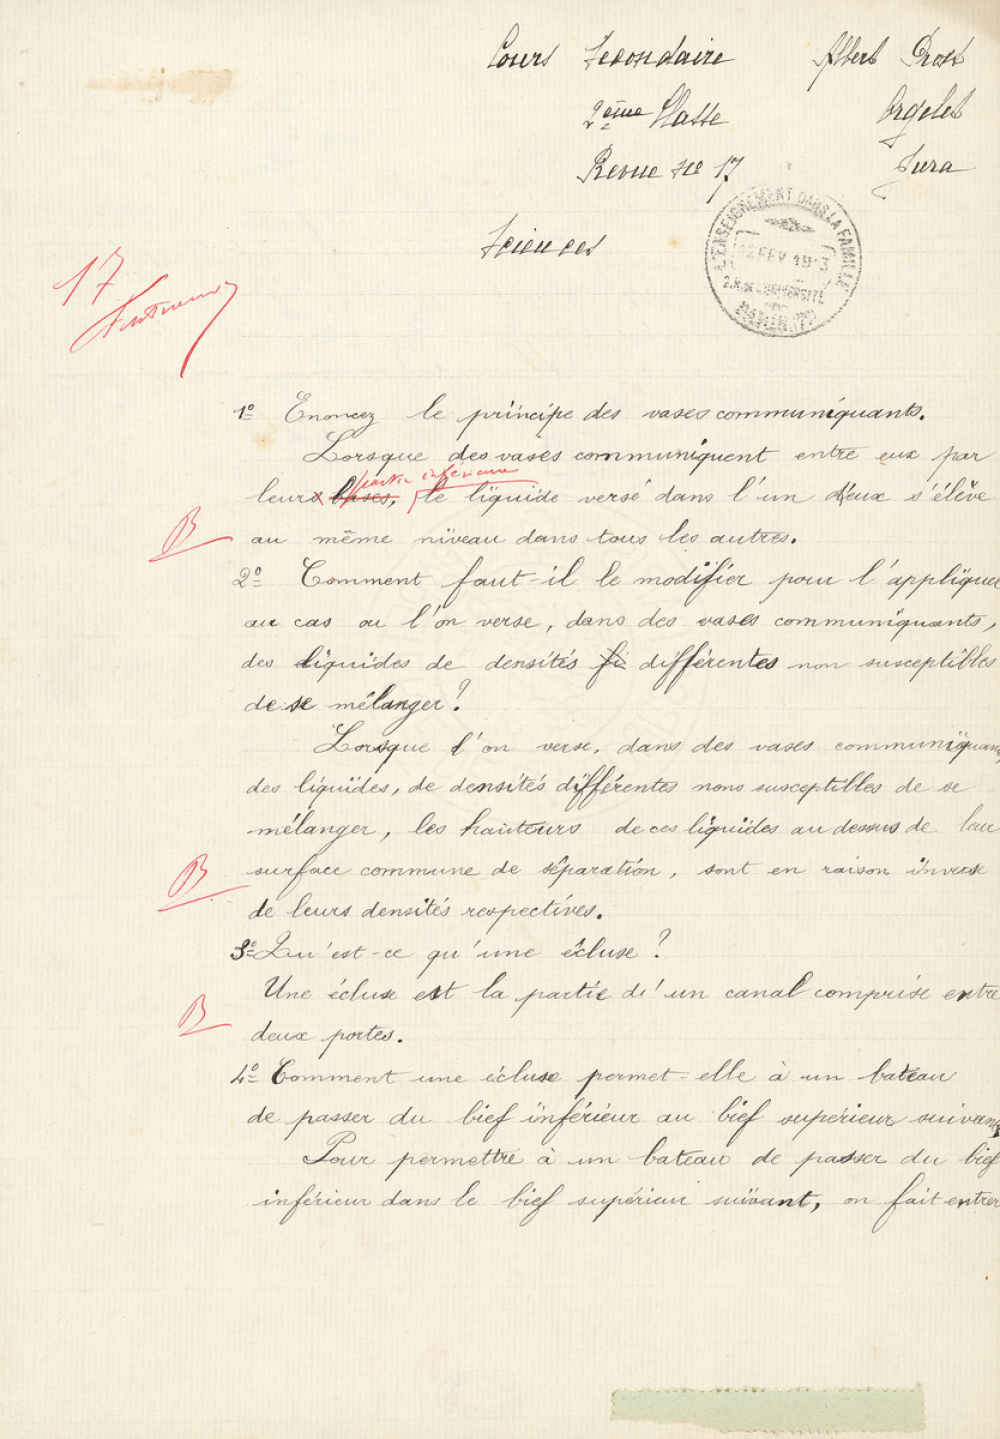 Cours Secondaire Albert Prost
2ème Classe Orgelet
Revue No 17 Jura
L'ENSEIGNEMENT DANS LA FAMILLE
12 FEV 19
2. R. de l'UNIVERSITÉ
PARIS (7e)
Sciences
17
1o Enoncez le principe des vases communiquants.
Lorsque des vases communiquent entre eux par
partie inférieure
leurs bases, le liquide versé dans l'un d'eux s'élève
B
au même niveau dans tous les autres.
2o Comment faut-il le modifier pour l'appliquer
au cas ou l'on verse, dans des vases communiquants,
des liquides de densités fi différentes non susceptibles
de se mélanger?
Lorsque l'on verse, dans des vases communiquants
des liquides, de densités différentes nons susceptibles de se
mélanger, les hauteurs de ces liquides au dessus de leur
B
surface commune de séparation, sont en raison inverse
de leurs densités respectives.
3o Qu'est-ce qu'une écluse?
Une écluse est la partie d'un canal comprise entre
B
deux portes.
4o Comment une écluse permet-elle à un bateau
de passer du bief inférieur au bief supérieur suivant
Pour permettre à un bateau de passer du bief
inférieur dans le bief supérieur suivant, on fait entrer